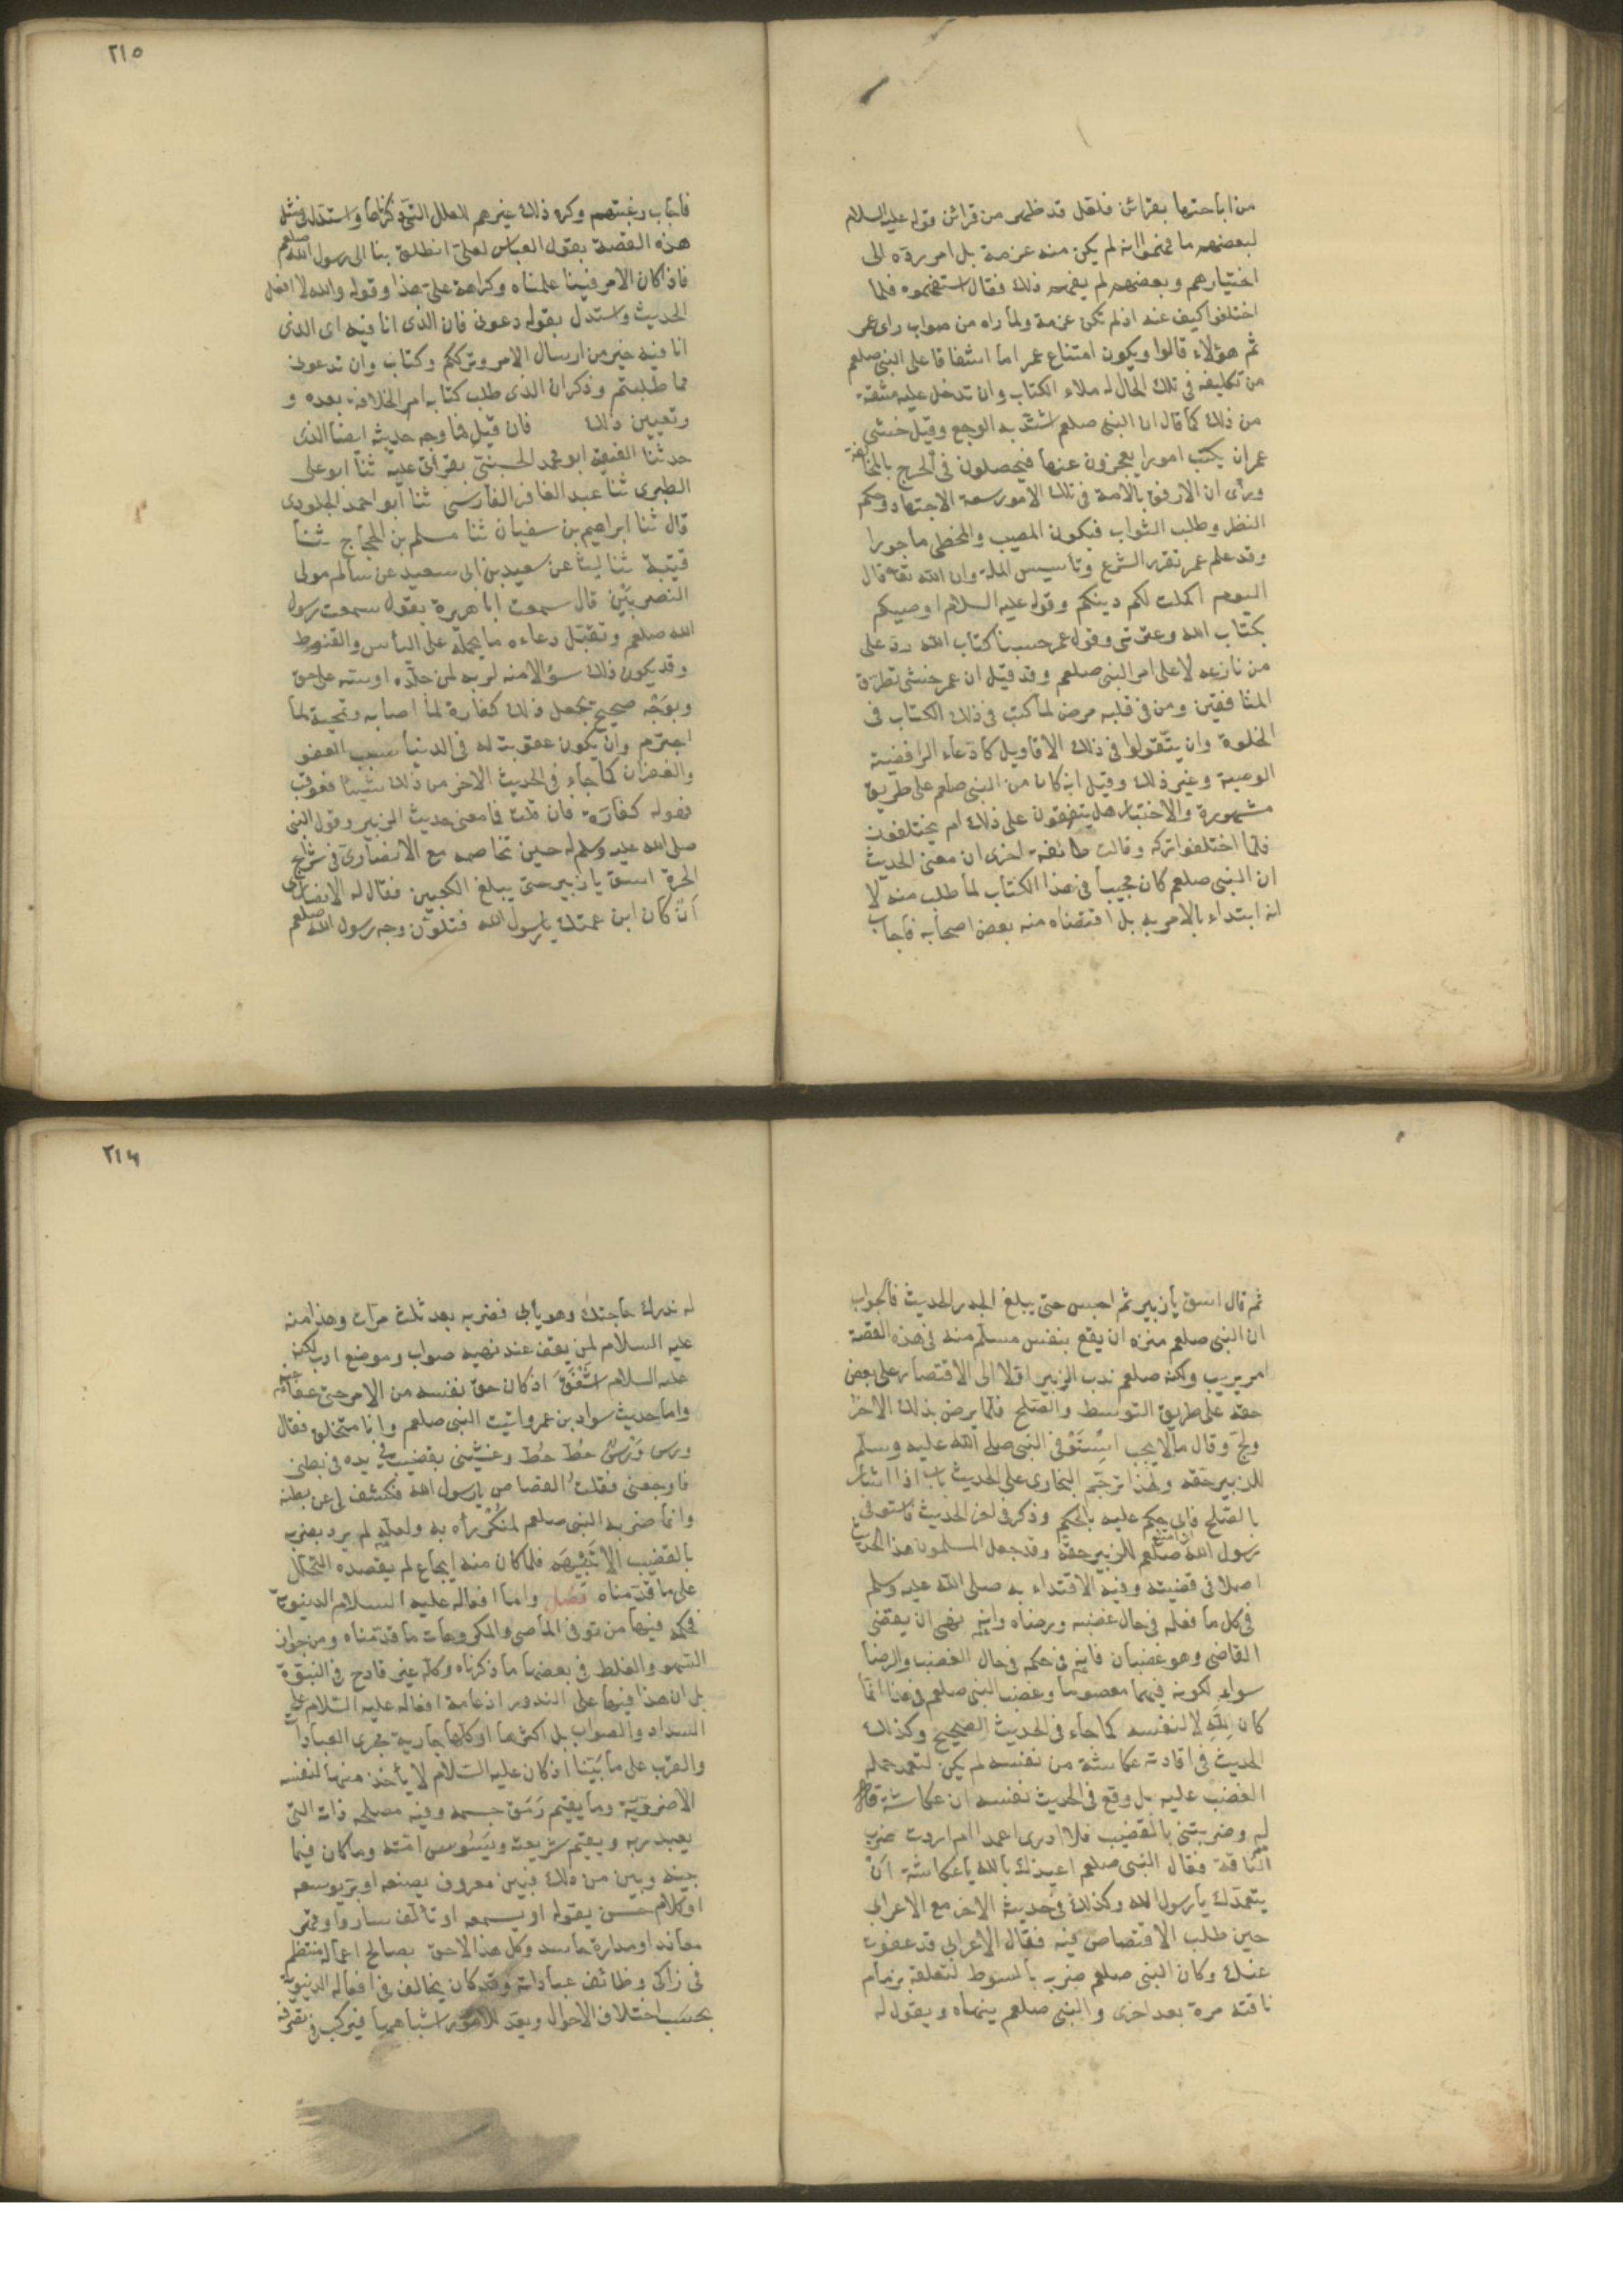 من اباحتها بقرائن فلعل قد ظهر من قرائن قوله عليه السلام
لبعضهم ما فهموا انه لم يكن منه عزمة بل امر رده الى
اختيارهم وبعضهم لم يفهم ذلك فقال استفهموه فلما
اختلفوا كف عنه اذ لم تكن عزمة ولما راه من صواب راى عمر
ثم هؤلاء قالوا ويكون امتناع عمر اما اشفاقا على النبى صلعم
من تكليفه فى تلك الحال له ملاء الكتاب وان تدخل عليه مشقة
من ذلك كما قال ان النبى صلعم اشتد به الوجع وقيل خشى
عمر ان يكتب امورا يعجزون عنها فيحصلون فى الحرج بالمخالفة
ورأى ان الارفق بالامة فى تلك الامور سعة الاجتهاد وحكم
النظر وطلب الثواب فيكون المصيب والمخطى ماجورا
وقد علم عمر تقرر الشرع وتأسيس الملة وان الله تعه قال
اليوم اكملت لكم دينكم وقوله عليه السلام اوصيكم
بكتاب الله وعترتى وقول عمر حسبنا كتاب الله رد على
من نازعه لا على امر النبى صلعم وقد قيل ان عمر خشى تطرق
المنافقين ومن فى قلبه مرض لما كتب فى ذلك الكتاب فى
الخلوة وان يتقولوا فى ذلك الاقاويل كادعاء الرافضية
الوصية وغير ذلك وقيل انه كان من النبى صلعم على طريق
مشهورة والاختبار هل يتفقون على ذلك ام يختلفون
فلما اختلفوا تركه وقالت طائفة اخرى ان معنى الحديث
ان النبى صلعم كان مجيبا فى هذا الكتاب لما طلب منه لا
انه ابتداء بالامر به بل اقتضاه منه بعض اصحابه فاجاب
٢١٥
فاجاب رغبتهم وكره ذلك غيرهم للعلل التى ذكرناها واستدل فى مثل
هذه القصة بقول العباس لعلى انطلق بنا الى رسول الله صلعم
فاذا كان الامر فينا علمناه وكراهة على هذا وقوله والله لا افعل
الحديث واستدل بقوله دعونى فان الذى انا فيه اى الذى
انا فيه خير من ارسال الامر وترككم وكتاب وان تدعونى
مما طلبتم وذكر ان الذى طلب كتابه امر الخلافة بعده و
وتعيين ذلك فان قيل فما وجه حديثه ايضا الذى
حدثنا الفقيه ابو محمد الخشنى بقرأتى عليه ثنا ابو على
الطبرى ثنا عبد الغافر الفارسى ثنا ابو احمد الجلودى
قال ثنا ابراهيم بن سفيان ثنا مسلم بن الحجاج ثنا
قتيبة ثنا ليث عن سعيد بن ابى سعيد عن سالم مولى
النصريين قال سمعت ابا هريرة يقول سمعت رسول
الله صلعم وتقبل دعاءه ما يحمله على اليأس والقنوط
وقد يكون ذلك سؤالا منه لربه لمن جلده او سبه على حق
وبوجه صحيح تجعل ذلك كفارة لما اصابه وتمحية لما
اجترم وان تكون عقوبته له فى الدنيا سبب العفو
والغفران كما جاء فى الحديث الاخر من ذلك شيئا فعوقب
فهو له كفارة فان قلت فما معنى حديث الزبير وقول النبى
صلى الله عليه وسلم له حين تخاصمه مع الانصارى فى شراج
الحرة اسق يا زبير حتى يبلغ الكعبين فقال له الانصارى
ان كان ابن عمتك يا رسول الله فتلون وجه رسول الله صلعم
ثم قال اسق يا زبير ثم احبس حتى يبلغ الجدر الحديث فالجواب
ان النبى صلعم منزه ان يقع بنفس مسلم منه فى هذه القصة
امر يريب ولكنه صلعم ندب الزبير اولا الى الاقتصار على بعض
حقه على طريق التوسط والصلح فلما يرض بذلك الاخر
ولج وقال ما لا يجب استوفى النبى صلى الله عليه وسلم
للزبير حقه ولهذا ترجم البخارى على الحديث باب اذا اشار
بالصلح فابى حكم عليه بالحكم وذكر فى اخر الحديث فاستوفى
رسول الله صلعم للزبير حقه وقد جعل المسلمون هذا الحديث
اصلا فى قضيته وفيه الاقتداء به صلى الله عليه وسلم
فى كل ما فعله فى حال غضبه ورضاه وانه نهى ان يقضى
القاضى وهو غضبان فانه فى حكمه فى حال الغضب والرضا
سواء لكونه فيهما معصوما وغضب النبى صلعم فى هذا انما
كان لله لا لنفسه كما جاء فى الحديث الصحيح وكذلك
الحديث فى اقادته عكاشة من نفسه لم يكن لتعمد حمله
الغضب عليه بل وقع فى الحديث نفسه ان عكاشة قال
له وضربتنى بالقضيب فلا ادرى اعمدا ام اردت ضرب
الناقة فقال النبى صلعم اعيذك بالله يا عكاشة ان
يتعمدك يا رسول الله وكذلك فى حديثه الاخر مع الاعرابى
حين طلب الاقتصاص منه فقال الاعرابى قد عفوت
عنك وكان النبى صلعم ضربه بالسوط لتعلقه بزمام
ناقته مرة بعد اخرى والنبى صلعم ينهاه ويقول له
٢١٦
له تدرك حاجتك وهو يأبى فضربه بعد ثلث مرات وهذا منه
عليه السلام لمن يقف عند نهيه صواب وموضع ادب لكنه
عليه السلام اشفق اذ كان حق نفسه من الامر حتى عفا عنه
واما حديث سواد بن عمرو اتيت النبى صلعم وانا متخلق فقال
ورس ورس حط حط وغشينى بقضيب فى يده فى بطنى
فاوجعنى فقلت القصاص يا رسول الله فكشف لى عن بطنه
وانما ضربه النبى صلعم لمنكر رأه به ولعله لم يرد بضربه
بالقضيب الا تنبيهه فلما كان منه ايجاع لم يقصده التحلل
على ما قدمناه فصل واما افعاله عليه السلام الدنيوية
فحكمه فيها من توقى المعاصى والمكروهات ما قدمناه ومن جواز
السهو والغلط فى بعضها ما ذكرناه وكله غير قادح فى النبوة
بل ان هذا فيها على الندور اذ عامة افعاله عليه السلام على
السداد والصواب بل اكثرها او كلها جارية مجرى العبادات
والقرب على ما بينا اذ كان عليه السلام لا يأخذ منها لنفسه
الا ضروريته وما يقيم رمق جسمه وفيه مصلحة ذاته التى
يعبد ربه ويقيم شريعته ويسوس امته وما كان فيما
بينه وبين من ذلك فبين معروف يصنعه او بر يوسعه
او كلام حسن يقوله او يسمعه او تألف شارد او قهر
معاند او مدارة حاسد وكل هذا لاحق بصالح اعماله منتظم
فى زاكى وظائف عباداته وقد كان يخالف فى افعاله الدنيوية
بحسب اختلاف الاحوال ويعد للامور اشباهها فيركب فى تصرفه